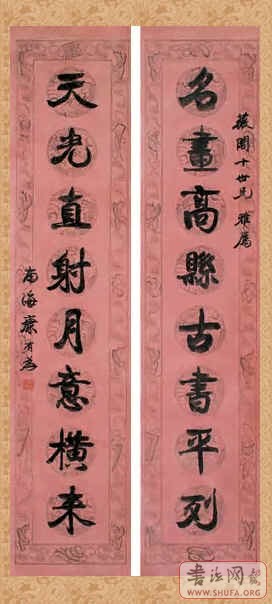 薇閣十世兄 雅屬
名畫高縣古書平列
天光直射月意橫来
南海康有為
WWW.SHUFA.ORG